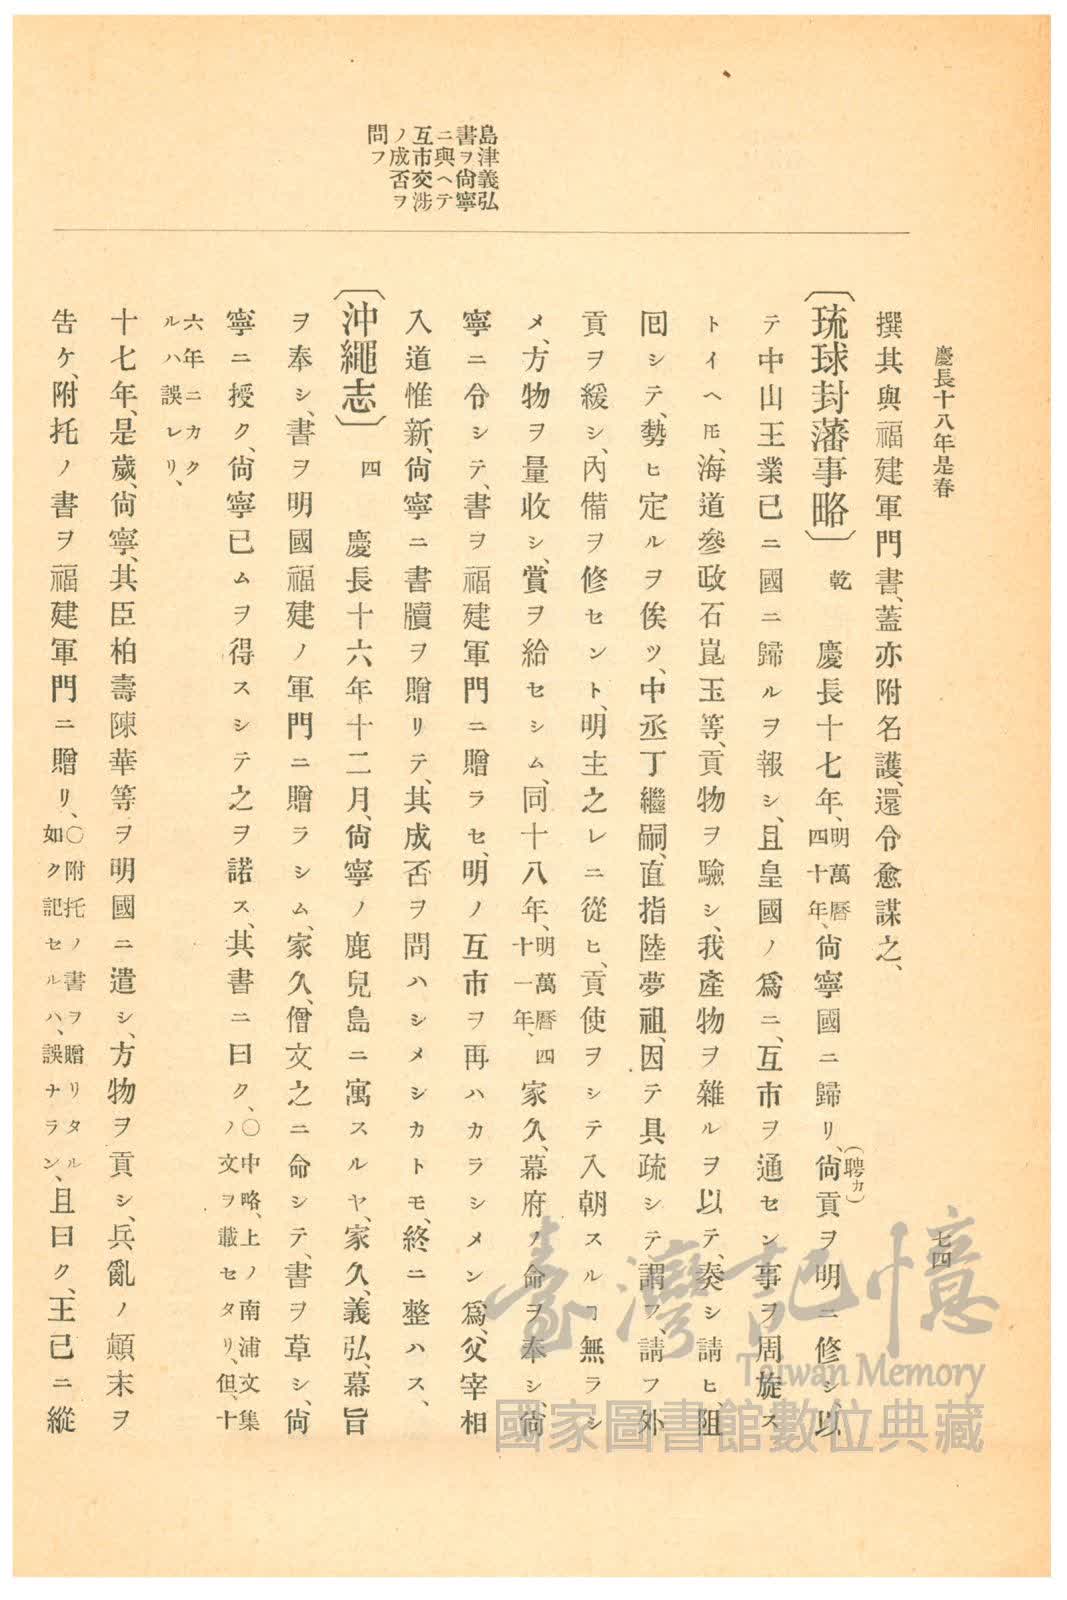 慶長十八年是春
七四
島津義弘
書ヲ尙寧
ニ與ヘテ
互市交渉
ノ成否ヲ
問フ
撰其與福建軍門書、蓋亦附名護、還令愈謀之、
〔琉球封藩事略〕 乾 慶長十七年、明萬曆四十年、尙寧國ニ歸リ、尙貢(聘カ)ヲ明ニ修シ、以
テ中山王業已ニ國ニ歸ルヲ報シ、且皇國ノ爲ニ、互市ヲ通セン事ヲ周旋ス
トイヘ𪜈、海道參政石崑玉等、貢物ヲ驗シ、我產物ヲ雜ルヲ以テ、奏シ請ヒ、阻
回シテ、勢ヒ定ルヲ俟ツ、中丞丁繼嗣、直指陸夢祖、因テ具疏シテ謂フ、請フ外
貢ヲ緩シ、內備ヲ修セント、明主之レニ從ヒ、貢使ヲシテ入朝スルヿ無ラシ
メ、方物ヲ量收シ、賞ヲ給セシム、同十八年、明萬曆四十一年、家久、幕府ノ命ヲ奉シ、尙
寧ニ令シテ、書ヲ福建軍門ニ贈ラセ、明ノ互市ヲ再ハカラシメン爲、父宰相
入道惟新、尙寧ニ書牘ヲ贈リテ、其成否ヲ問ハシメシカトモ、終ニ整ハス、
〔沖繩志〕 四 慶長十六年十二月、尙寧ノ鹿兒島ニ寓スルヤ、家久、義弘、幕旨
ヲ奉シ、書ヲ明國福建ノ軍門ニ贈ラシム、家久、僧文之ニ命シテ、書ヲ草シ、尙
寧ニ授ク、尙寧已ムヲ得スシテ之ヲ諾ス、其書ニ曰ク、〇中略、上ノ南浦文集ノ文ヲ載セタリ、但、十
六年ニカクルハ誤レリ、
十七年、是歲、尙寧、其臣柏壽陳華等ヲ明國ニ遣シ、方物ヲ貢シ、兵亂ノ顚末ヲ
告ケ、附托ノ書ヲ福建軍門ニ贈リ、〇附托ノ書ヲ贈リタル如ク記セルハ、誤ナラン、且曰ク、王已ニ縱
臺灣記憶
Taiwan Memory
國家圖書館數位典藏